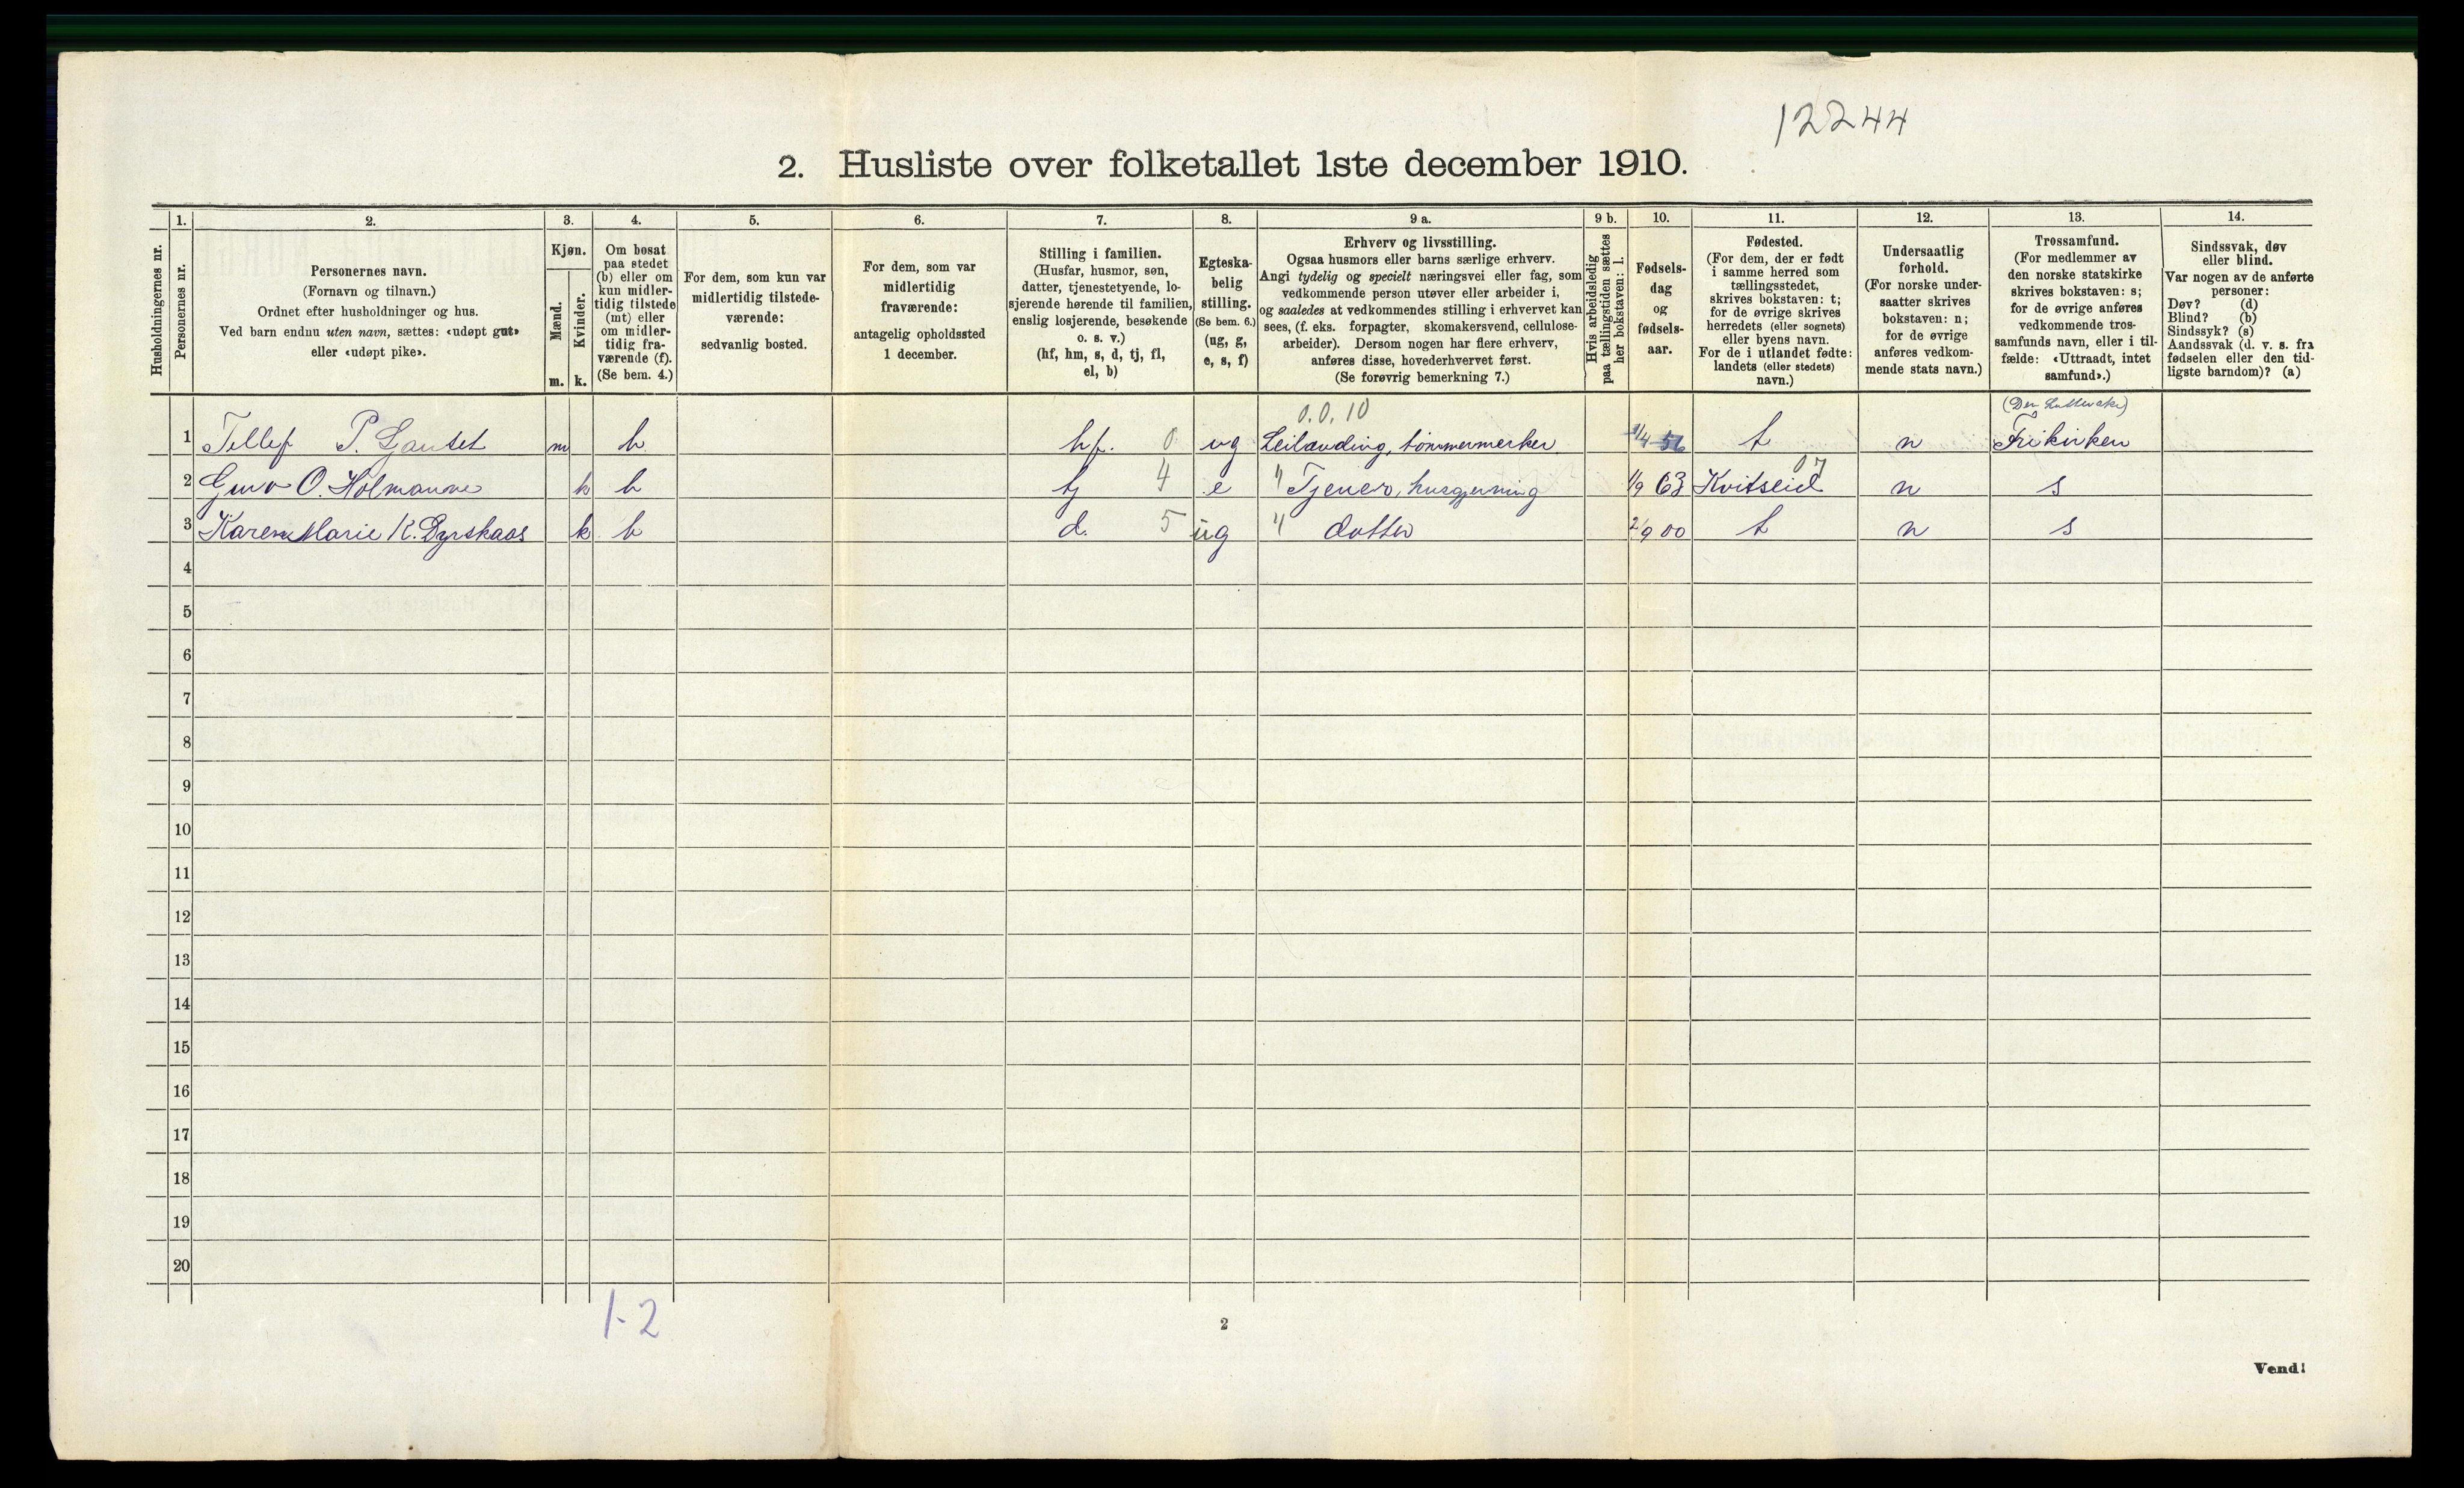 12244
2. Husliste over folketallet 1ste december 1910.
Husholdningernes nr.
1. Personernes nr.
2. Personernes navn.
(Fornavn og tilnavn.)
Ordnet efter husholdninger og hus.
Ved barn endnu uten navn, sættes: «udøpt gut»
eller «udøpt pike».
3. Kjøn.
Mænd. m.
Kvinder. k.
4. Om bosat
paa stedet
(b) eller om
kun midler-
tidig tilstede
(mt) eller
om midler-
tidig fra-
værende (f).
(Se bem. 4.)
5. For dem, som kun var
midlertidig tilstede-
værende:
sedvanlig bosted.
6. For dem, som var
midlertidig
fraværende:
antagelig opholdssted
1 december.
7. Stilling i familien.
(Husfar, husmor, søn,
datter, tjenestetyende, lo-
sjerende hørende til familien,
enslig losjerende, besøkende
o. s. v.)
(hf, hm, s, d, tj, fl,
el, b)
8. Egteska-
belig
stilling.
(Se bem. 6.)
(ug, g,
e, s, f)
9 a. Erhverv og livsstilling.
Ogsaa husmors eller barns særlige erhverv.
Angi tydelig og specielt næringsvei eller fag, som
vedkommende person utøver eller arbeider i,
og saaledes at vedkommendes stilling i erhvervet kan
sees, (f. eks. forpagter, skomakersvend, cellulose-
arbeider). Dersom nogen har flere erhverv,
anføres disse, hovederhvervet først.
(Se forøvrig bemerkning 7.)
9 b. Hvis arbeidsledig
paa tællingstiden sættes
her bokstaven: l.
10. Fødsels-
dag
og
fødsels-
aar.
11. Fødested.
(For dem, der er født
i samme herred som
tællingsstedet,
skrives bokstaven: t;
for de øvrige skrives
herredets (eller sognets)
eller byens navn.
For de i utlandet fødte:
landets (eller stedets)
navn.)
12. Undersaatlig
forhold.
(For norske under-
saatter skrives
bokstaven: n;
for de øvrige
anføres vedkom-
mende stats navn.)
13. Trossamfund.
(For medlemmer av
den norske statskirke
skrives bokstaven: s;
for de øvrige anføres
vedkommende tros-
samfunds navn, eller i til-
fælde: «Uttraadt, intet
samfund».)
14. Sindssvak, døv
eller blind.
Var nogen av de anførte
personer:
Døv? (d)
Blind? (b)
Sindssyk? (s)
Aandssvak (d. v. s. fra
fødselen eller den tid-
ligste barndom)? (a)
0.0.10
1 Tellef P. Gautet m b hf. 0 ug Leilænding, tømmermerker 1/4 56 t n Frikirken
07
2 Guro O. Holmanne k b tj 4 e " Tjener, husgjerning 1/9 63 Kvitseid n s
3 Karen Marie K. Dyrskaas k b d. 5 ug " datter 2/9 00 t n s
4
5
6
7
8
9
10
11
12
13
14
15
16
17
18
19
20
1-2
2
Vend!